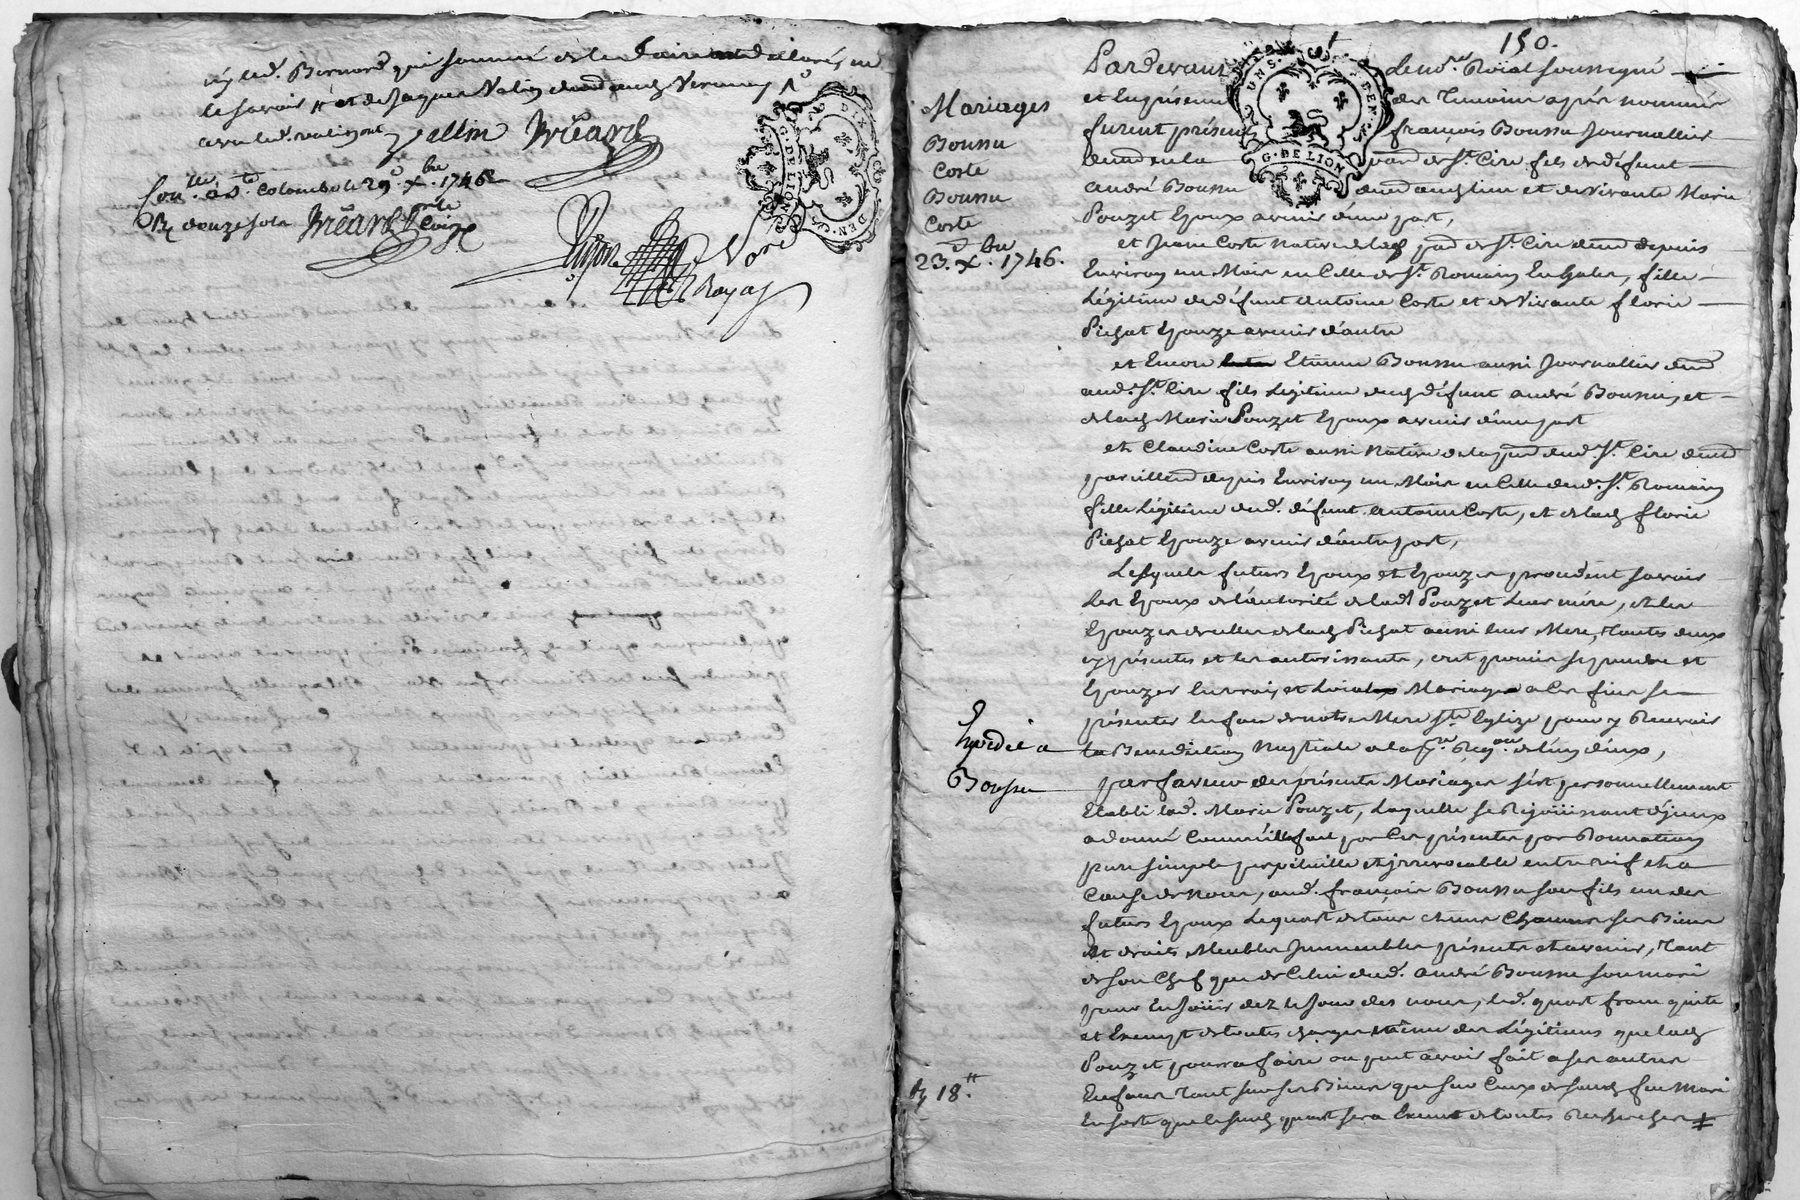 led. Bernard qui sommé de le faire ont déclaré ne
le savoir et de Jaques Valin
avec led.
Vallin Briéard
Con.lle à Ste Colombe le 29e Xbre 1746
R. douze sols Briéard
DIX DEN.
G. DE LION
150.
Mariages
Boussu
Coste
Boussu
Coste
23e Xbre 1746.
UN S. DEN.
G. DE LION
Pardevant Le no.re Roial soussigné
et En présence des Temoins après nommés
furent présents françois Boussu Journallier
demeurant en la par. de St. Cire fils de défunt
André Boussu dud. lieu et de vivante Marie
Pouzet Epoux avenir d'une part,
et Jeane Coste native de lad. par. de St. Cire dem.t depuis
Environ un Mois en Celle de St. Romain En Galer, fille
Légitime de défunt Antoine Coste et de Vivante florie
Pichat Epouze avenir d'autre
et Encore Etienne Boussu aussi Journallier dem.t
aud. St. Cire fils Légitime dud. défunt André Boussu, et
de lad. Marie Pouzet Epoux avenir d'une part
et Claudine Coste aussi Native de la par. dud. St. Cire dem.t
pareillem.t depuis Environ un Mois en Celle dud. St. Romain
fille Légitime dud. défunt Antoine Coste, et de lad. florie
Pichat Epouze avenir d'autre part,
Lesquels futurs Epoux et Epouzes procédent savoir
Les Epoux de l'autorité de lad. Pouzet Leur mère, et les
Epouzes de celle de lad. Pichat aussi leur Mere, Toutes deux
cy présentes et les autorissants, ont promis se prendre et
Epouzer En vrai, et Loial Mariage a Ces fins se
présenter En face de notre Mere Ste Eglize pour y Recevoir
Expédié a
Boussu
la Benediction Nuptiale a la pre. Req.on de l'un d'eux,
par faveur des présents Mariages s'est personnellement
Etabli lad. Marie Pouzet, Laquelle se Réjouissant d'yceux
a donné Comme Elle fait par Ces présentes par Donnation
pure simple perpétuelle et jrrevocable entre vif et a
Cause de noces, aud. françois Boussu son fils un des
futurs Epoux Le quart de tous et uns Chacuns ses Biens
et droits Meubles Jmmeubles présents et avenir, Tant
de son Chef que de Celui dud. André Boussu son mari
pour En Jouir dez le Jour des noces, led. quart franc quitte
et Exempt de toutes charges même des Légitimes que lad.
Pouzet pourra faire ou peut avoir fait a ses autres
Enfans Tant sur ses Biens que sur Ceux de sond. feu Mari
18.
En sorte que lesusd. quart sera Exemt de toutes Recherches